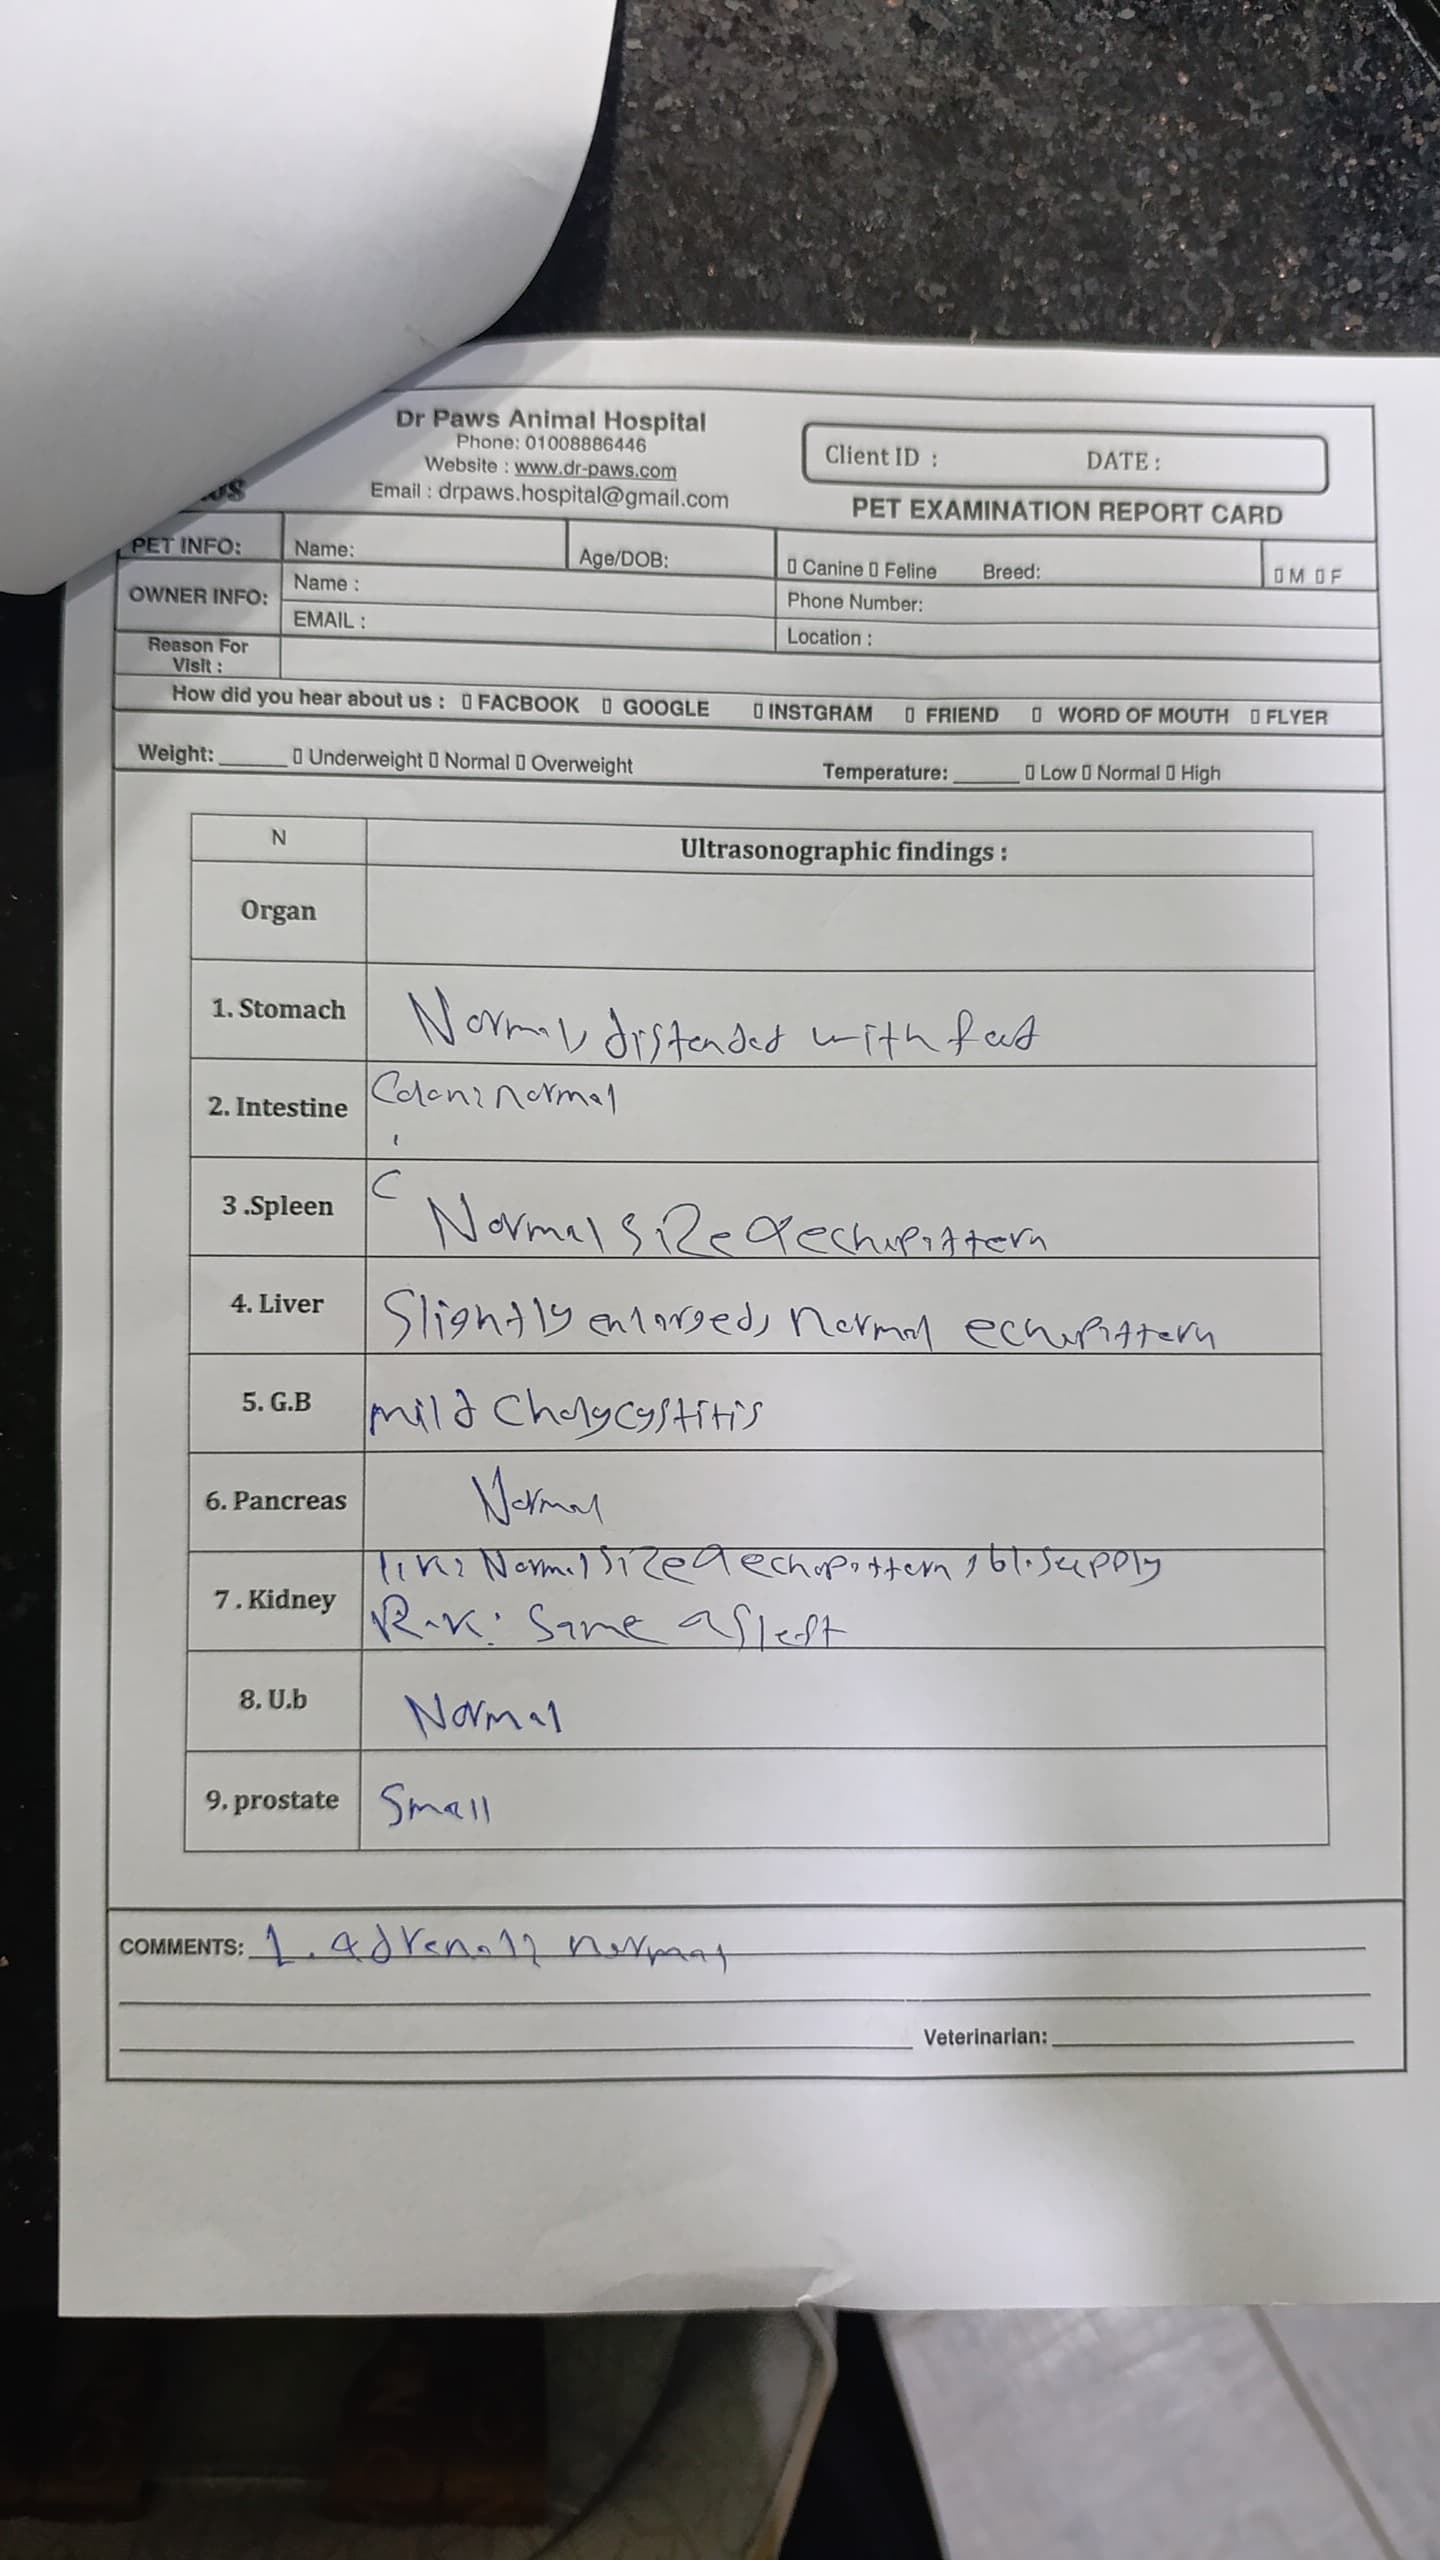 Dr Paws Animal Hospital
Phone: 01008886446
Website : www.dr-paws.com
Email : drpaws.hospital@gmail.com
Client ID : DATE :
PET EXAMINATION REPORT CARD
PET INFO: Name: Age/DOB: Canine Feline Breed: M F
OWNER INFO: Name : Phone Number:
EMAIL : Location :
Reason For
Visit :
How did you hear about us : FACBOOK GOOGLE INSTGRAM FRIEND WORD OF MOUTH FLYER
Weight: Underweight Normal Overweight Temperature: Low Normal High
N Ultrasonographic findings :
Organ
1. Stomach Normal, distended with
2. Intestine Colon: normal
3 .Spleen Normal size & echopattern
4. Liver Slightly enlarged, normal echopattern
5. G.B mild Cholycystitis
6. Pancreas Normal
7 . Kidney Normal size & echopattern, bl. supply
R.K: Same as left
8. U.b Normal
9. prostate Small
COMMENTS: 1. adrenal: normal
Veterinarian: